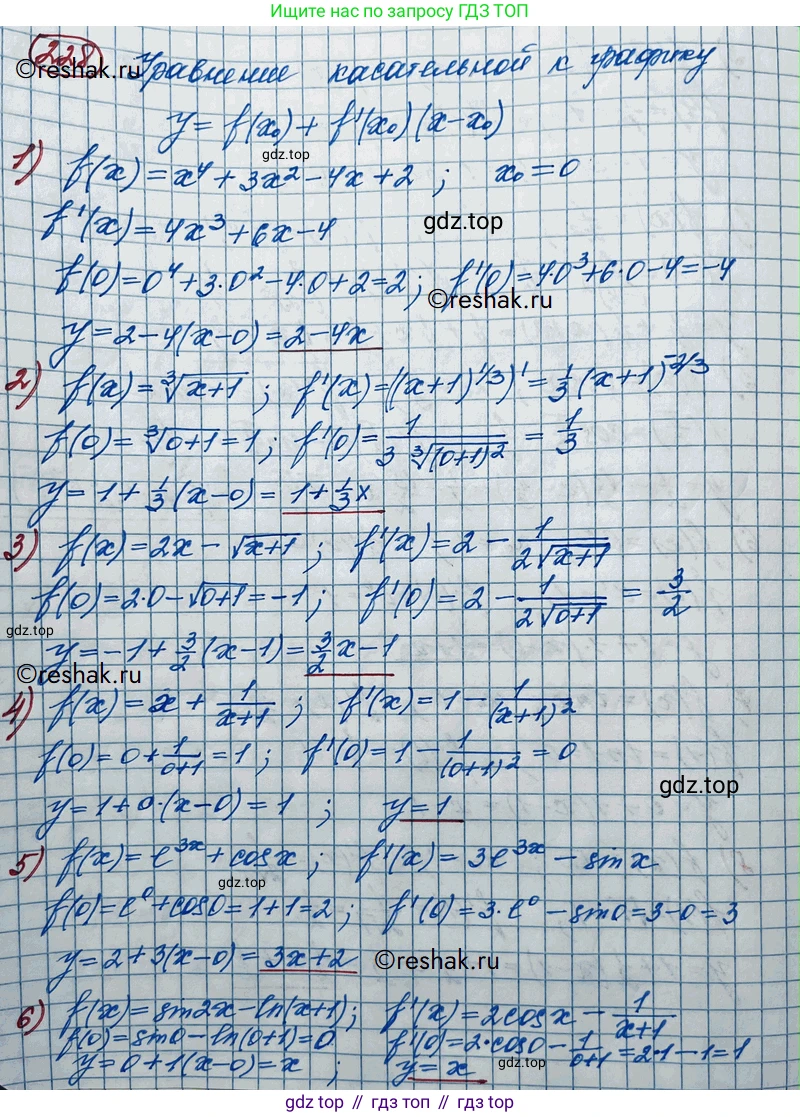 Ищите нас по запросу ГДЗ ТОП
228
©reshak.ru
Уравнение касательной к графику
y = f(x₀) + f'(x₀)(x-x₀)
gdz.top
1) f(x) = x⁴ + 3x² - 4x + 2 ; x₀ = 0
f'(x) = 4x³ + 6x - 4
gdz.top
f(0) = 0⁴ + 3·0² - 4·0 + 2 = 2 ; f'(0) = 4·0³ + 6·0 - 4 = -4
©reshak.ru
y = 2 - 4(x-0) = 2 - 4x
2) f(x) = ∛(x+1) ; f'(x) = ((x+1)^1/3)' = 1/3 (x+1)^-2/3
f(0) = ∛(0+1) = 1 ; f'(0) = 1/(3 ∛((0+1)²)) = 1/3
y = 1 + 1/3 (x-0) = 1 + 1/3 x
3) f(x) = 2x - √(x+1) ; f'(x) = 2 - 1/(2√(x+1))
f(0) = 2·0 - √(0+1) = -1 ; f'(0) = 2 - 1/(2√(0+1)) = 3/2
gdz.top
y = -1 + 3/2 (x-1) = 3/2 x - 1
©reshak.ru
4) f(x) = x + 1/(x+1) ; f'(x) = 1 - 1/(x+1)²
f(0) = 0 + 1/(0+1) = 1 ; f'(0) = 1 - 1/(0+1)² = 0
gdz.top
y = 1 + 0·(x-0) = 1 ; y = 1
5) f(x) = e^3x + cosx ; f'(x) = 3e^3x - sinx
gdz.top
f(0) = e⁰ + cos0 = 1 + 1 = 2 ; f'(0) = 3·e⁰ - sin0 = 3 - 0 = 3
y = 2 + 3(x-0) = 3x + 2
©reshak.ru
6) f(x) = sin2x - ln(x+1) ; f'(x) = 2cosx - 1/(x+1)
f(0) = sin0 - ln(0+1) = 0 f'(0) = 2·cos0 - 1/(0+1) = 2·1 - 1 = 1
y = 0 + 1(x-0) = x ; y = x
gdz.top
gdz top // гдз топ // gdz.top